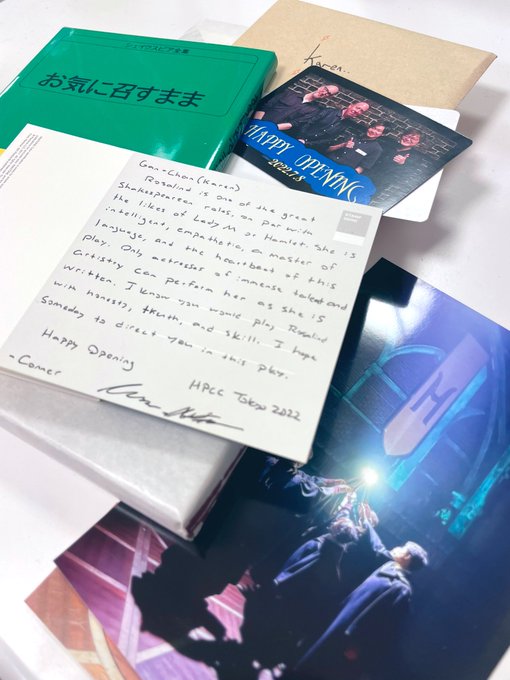 シェイクスピア全集
お気に召すまま
Karen..
HAPPY OPENING
2022.7.8
Gan-Chan (Karen)
Rosalind is one of the great
Shakespearean roles, on par with
the likes of Lady M or Hamlet. She is
intelligent, empathetic, a master of
language, and the heartbeat of this
play. Only actresses of immense talent and
artistry can perform her as she is
written. I know you would play Rosalind
with honesty, truth, and skill. I hope
someday to direct you in this play.
Happy Opening
-Conner
HPCC Tokyo 2022